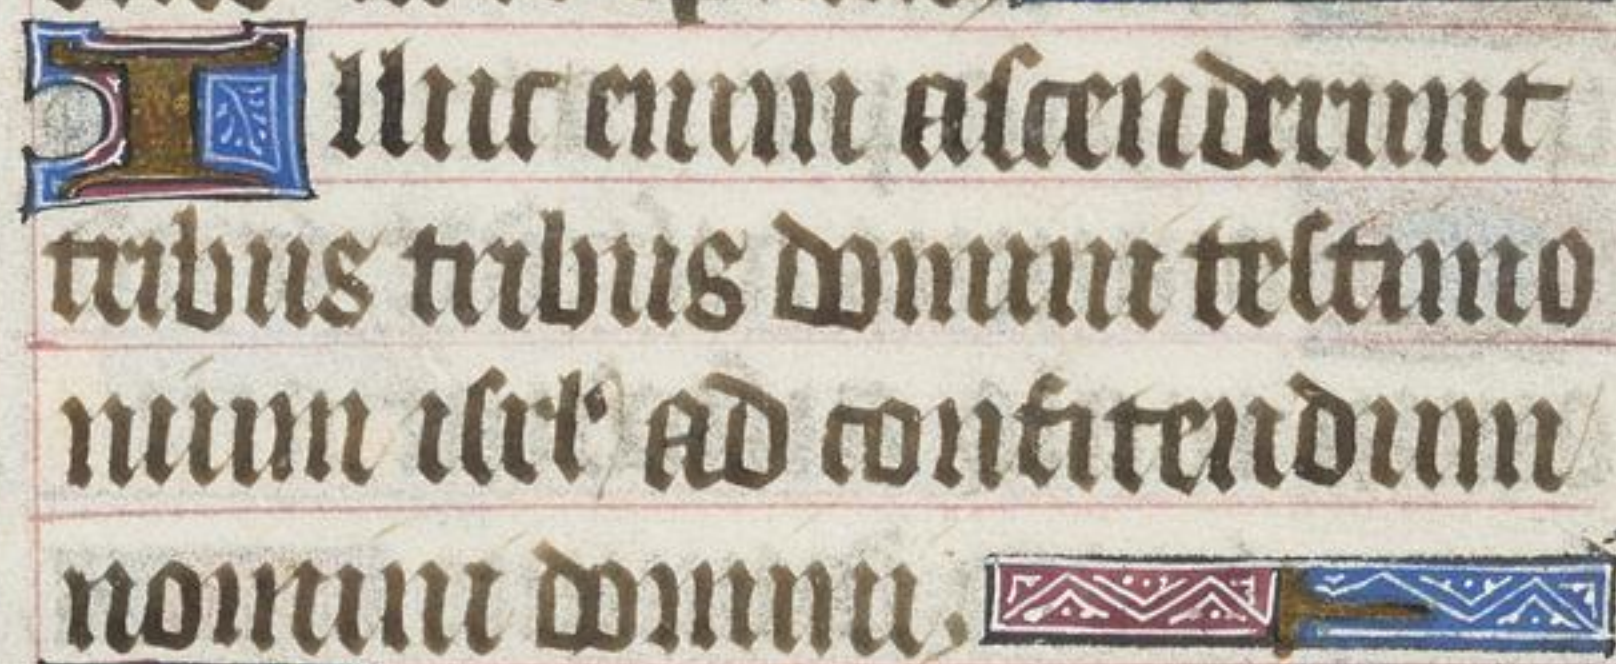 Illuc enim ascenderunt
tribus tribus domini testimo
nium isrl' ad confitendum
nomini domini.